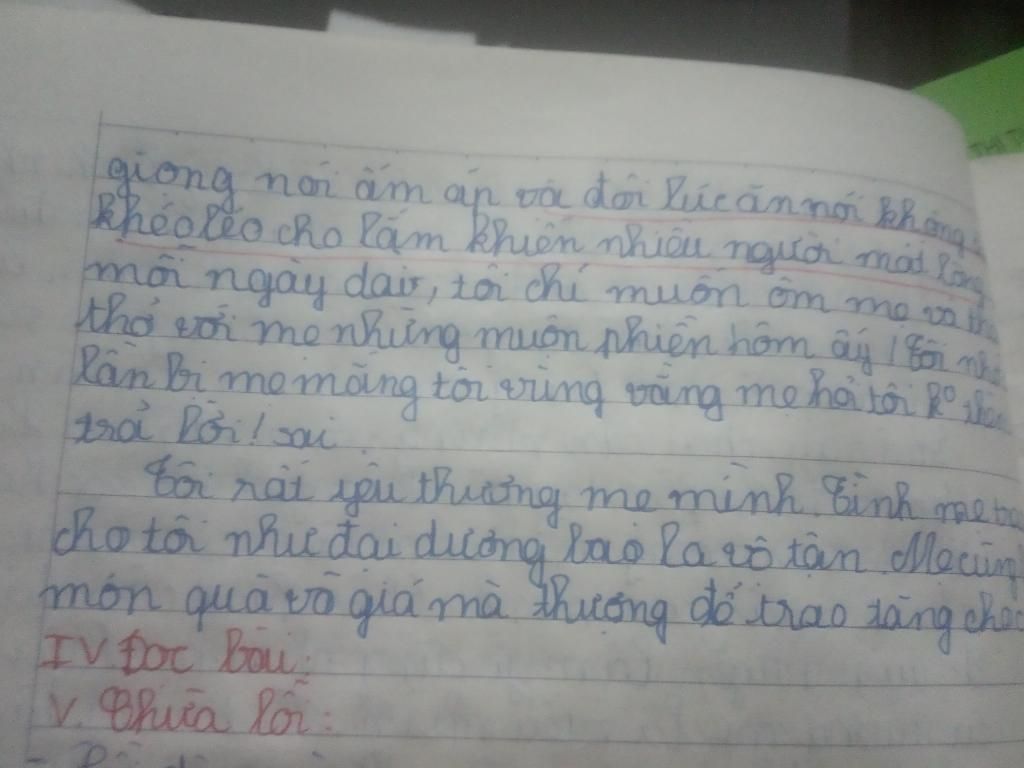 giọng nói ấm áp và đôi lúc ăn nói không
khéo léo cho lắm khiến nhiều người mất lòng
mỗi ngày dài, tôi chỉ muốn ôm mẹ và
thỏ với mẹ những muộn phiền hôm ấy! Tôi nhớ
lần bị mẹ mắng tôi vùng vằng mẹ hỏi tôi ko
trả lời! sai
Tôi rất yêu thương mẹ mình. Tình mẹ
cho tôi như đại dương bao la vô tận. Mẹ cũng
món quà vô giá mà thượng đế trao tặng cho
IV Đọc bài:
V. Chữa lỗi: